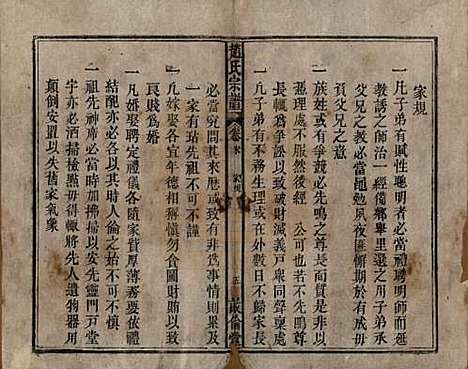 家規
一凡子弟有賦性聰明者必當禮聘明者而
教誘之師治一經備鄉舉里選之用子弟承
父兄之教必當黽勉夙夜匪懈期於有成毋
負父兄之意
一族姓或有爭競必先鳴之尊長而尊長以
盡理處不服然後經 公可也若不先鳴尊
長輒興訟以致破財滅義戶衆同聲稟處
一凡子弟有不務生理或在外數日不歸家長
趙氏宗譜
卷末
家規
五
敦倫堂
必當究問其來歷或致有非為事情則累及
一家有玷先祖不可不慎
一凡嫁娶各宜年德相稱慎勿貪圖財賄以致
良賤為婚
一婚娶聘定禮儀各隨家貲厚薄務要依禮
結配亦必各以其時人倫之始不可不慎
一祖先神席必當時加拂掃以安先靈門戸堂
宇亦必洒掃檢點毋得輒將先人遺物器用
顛倒安置以失舊家氣象